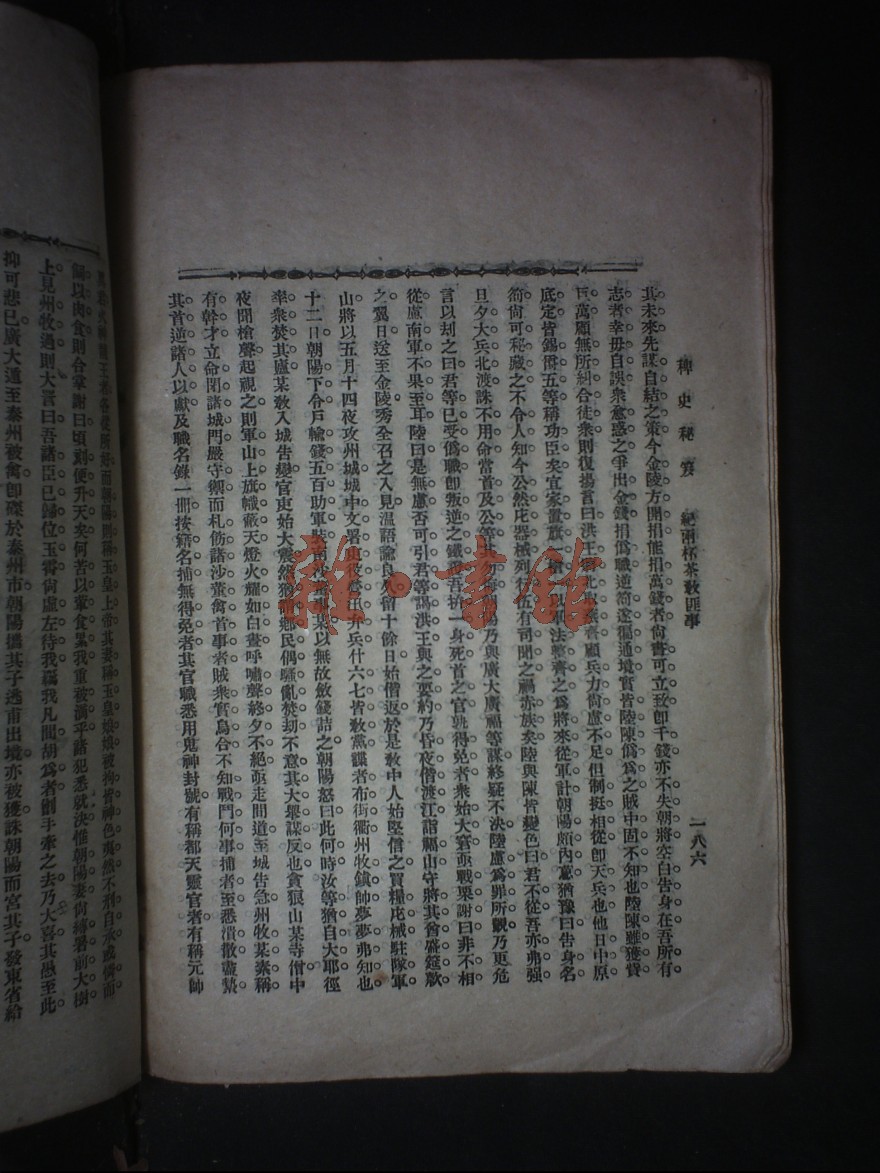 稗史秘笈 紀兩杯茶敎匪事 一八六
其未來先謀自結之策今金陵方開捐能捐萬錢者尙書可立致卽千錢亦不失朝將空白告身在吾所有
志者幸毋自誤衆愈惑之爭出金錢捐僞職逆簡遂徧通境實皆陸陳僞爲之賊中固不知也陸陳雖獲貲
巨萬顧無所糾合徒衆則復揚言曰洪王 北 顧兵力尙慮不足但制挺相從卽天兵也他日中原
底定皆錫爵五等稱功臣矣宜家置 軍法整齊之爲將來從軍計朝陽頗內意猶豫曰告身名
简尙可秘藏之不令人知今公然庀器械列行伍有司聞之禍赤族矣陸與陳皆變色曰君不從吾亦弗强
旦夕大兵北渡誅不用命當首及公等 朝陽乃與廣大廣福等謀終疑不決陸盧爲罪所覩乃更危
言以刦之曰君等已受僞職卽叛逆之鐵 吾 一身死首之官孰得免者衆始大窘亟戰栗謝曰非不相
從慮南軍不果至耳陸曰是無慮否可引君等謁洪王與之要約乃昏夜偕渡江詣福山守將其酋盛筵款
之翼日送至金陵秀全召之入見溫語諭良久留十餘日始偕返於是敎中人始堅信之買糧庀械駐隊軍
山將以五月十四夜攻州城城中文署吏役 弁兵什六七皆敎黨諜者布街衢州牧鎭帥夢夢弗知也
十二日朝陽下令戶輸錢五百助軍時南 某以無故斂錢詰之朝陽怒曰此何時汝等猶自大耶徑
率衆焚其廬某敎入城告變官吏始大震然猶 鄕民偶騷亂焚劫不意其大舉謀反也貪狼山某寺僧中
夜聞槍聲起視之則軍山上旗幟蔽天燈火耀如白晝呼嘯聲終夕不絕亟走間道至城告急州牧某素稱
有幹才立命閉諸城門嚴守禦而札飭諸沙董禽首事者賊衆實烏合不知戰鬥何事捕者至悉潰散盡縶
其首逆諸人以獻及職名錄一冊按籍名捕無得免者其官職悉用鬼神封號有稱都天靈官者有稱元帥
王 各從所好而朝陽則稱玉皇上帝其妻稱玉皇娘娘被拘皆神色夷然不刑自承或憐而
飼以肉食則合掌謝曰頃刻便升天矣何苦以葷食累我重被謫乎諸犯悉就決惟朝陽妻尙 署前大樹
上見州牧過則大詈曰吾諸臣已歸位玉霄尙虛左待我羈我凡間胡爲者劊手牽之去乃大喜其愚至此
抑可悲已廣大遁至泰州被禽卽磔於泰州市朝陽攜其子逃甫出境亦被獲誅朝陽而宮其子發東省給